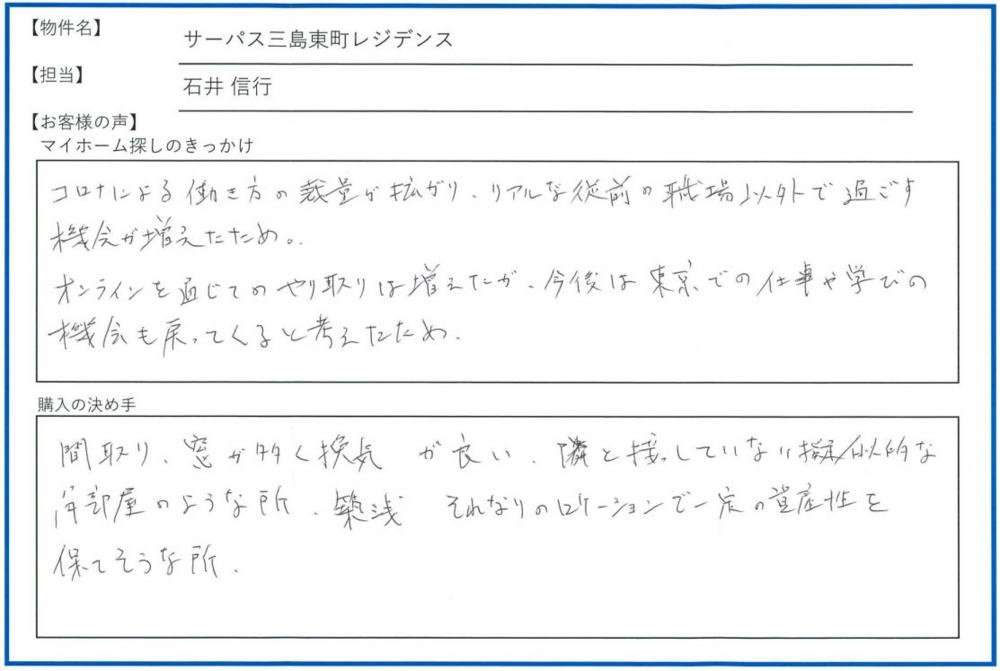 【物件名】
サーパス三島東町レジデンス
【担当】
石井 信行
【お客様の声】
マイホーム探しのきっかけ
コロナによる働き方の裁量が拡がり、リアルな従前の職場以外で過ごす
機会が増えたため。
オンラインを通じてのやり取りは増えたが、今後は東京での仕事や学びの
機会も戻ってくると考えたため。
購入の決め手
間取り、窓が多く換気が良い、隣と接していない擬似的な
角部屋のような所、築浅 それなりのロケーションで一定の資産性を
保てそうな所。